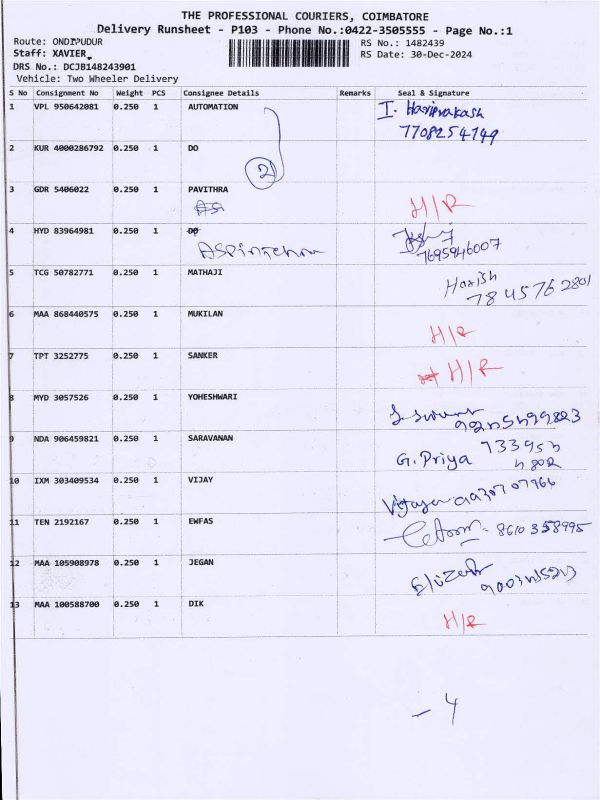 THE PROFESSIONAL COURIERS, COIMBATORE
Delivery Runsheet - P103 - Phone No.:0422-3505555 - Page No.:1
Route: ONDIPUDUR
RS No.: 1482439
Staff: XAVIER
RS Date: 30-Dec-2024
DRS No.: DCJB148243901
Vehicle: Two Wheeler Delivery
S No Consignment No Weight PCS Consignee Details Remarks Seal & Signature
1 VPL 950642081 0.250 1 AUTOMATION I. Hariprakash
7708254749
2 KUR 4000286792 0.250 1 DO
2
3 GDR 5406022 0.250 1 PAVITHRA
H/R
4 HYD 83964981 0.250 1 DO
7695946007
5 TCG 50782771 0.250 1 MATHAJI Harish
7845762801
6 MAA 868440575 0.250 1 MUKILAN
H/R
7 TPT 3252775 0.250 1 SANKER H/R
8 MYD 3057526 0.250 1 YOHESHWARI
9 NDA 906459821 0.250 1 SARAVANAN
G. Priya
10 IXM 303409534 0.250 1 VIJAY
11 TEN 2192167 0.250 1 EWFAS
8610358995
12 MAA 105908978 0.250 1 JEGAN
13 MAA 100588700 0.250 1 DIK
H/R
- 4